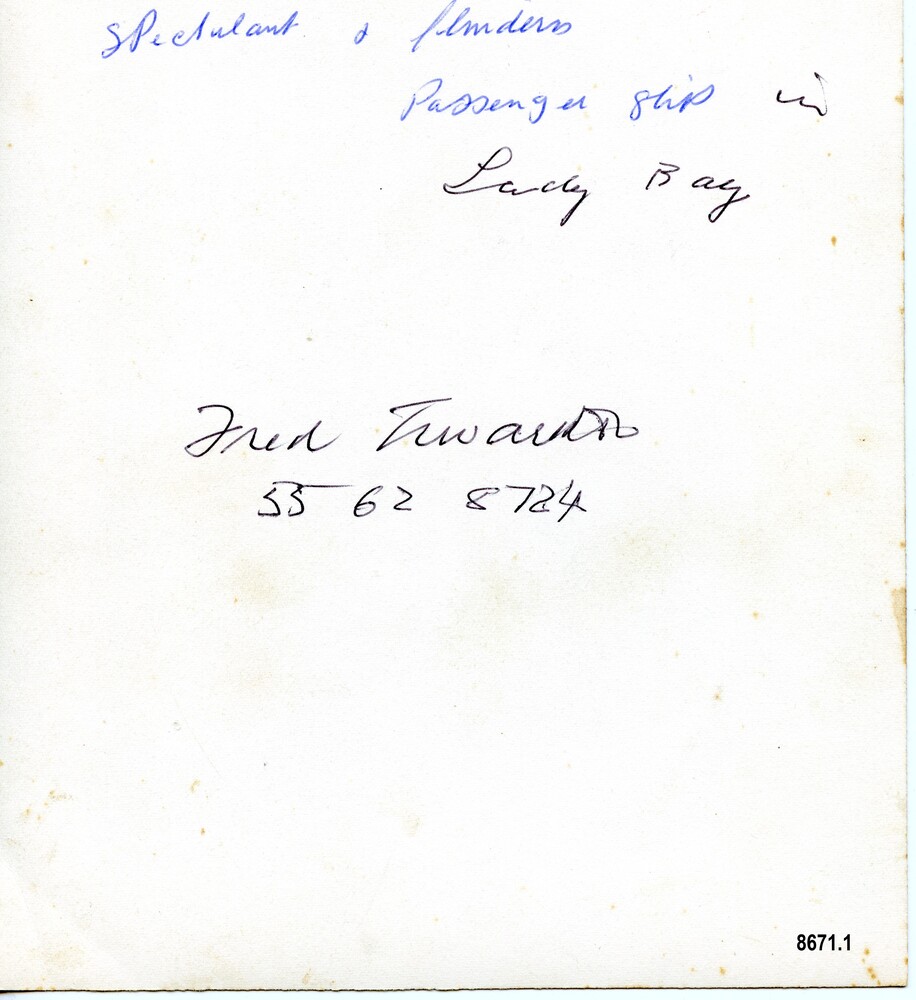 spectulant & flinders
Passenger ship in
Lady Bay
Fred
55 62 8724
8671.1